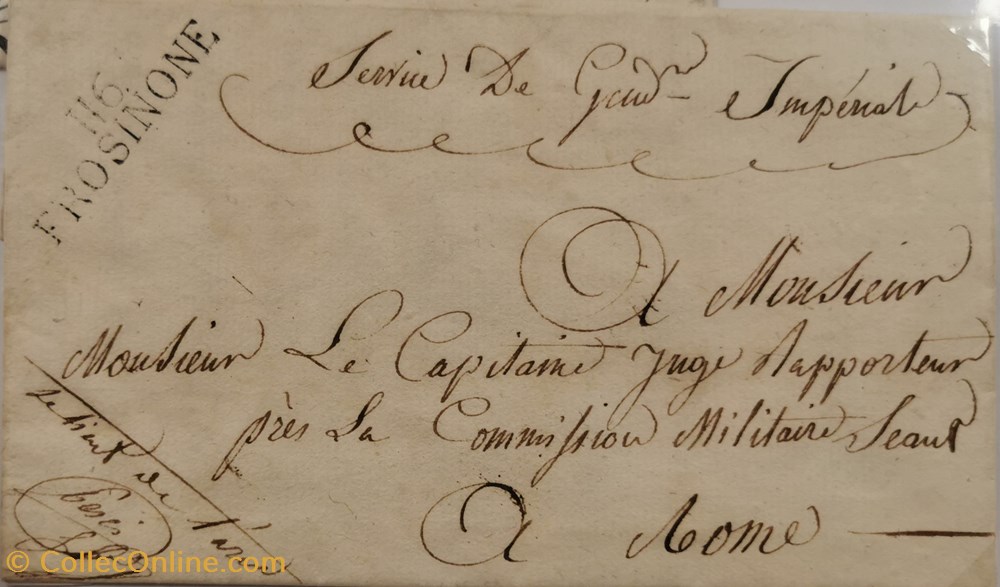 116
FROSINONE
Service De Gend^re Impérial
A Monsieur
Monsieur Le Capitaine Juge Rapporteur
près La Commission Militaire Seant
A Rome
© CollecOnline.com